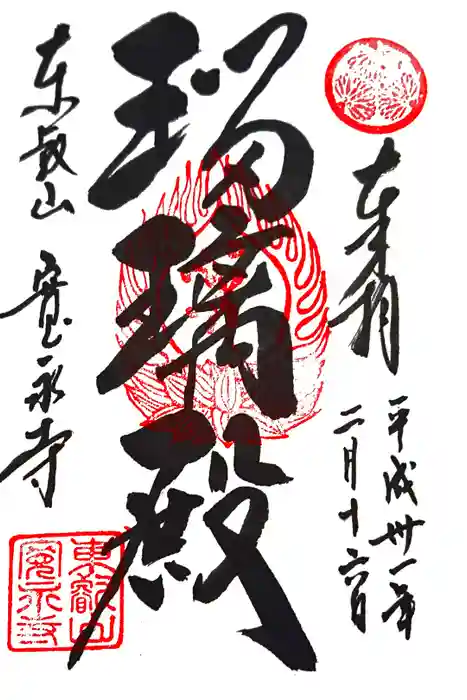 奉拝
平成卅一年
二月十六日
瑠璃殿
東叡山 寛永寺
東叡山
寛永寺